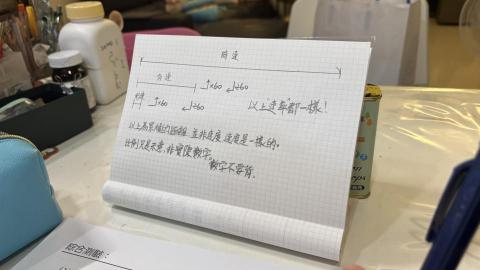 時速
分速 ↑×60 ↓÷60
秒速 ↑×60 ↓÷60 以上速率都一樣！
以上為累積的距離,並非速度,速度是一樣的。
比例只是示意,非實際數字。
數字不要背。
綜合測驗：